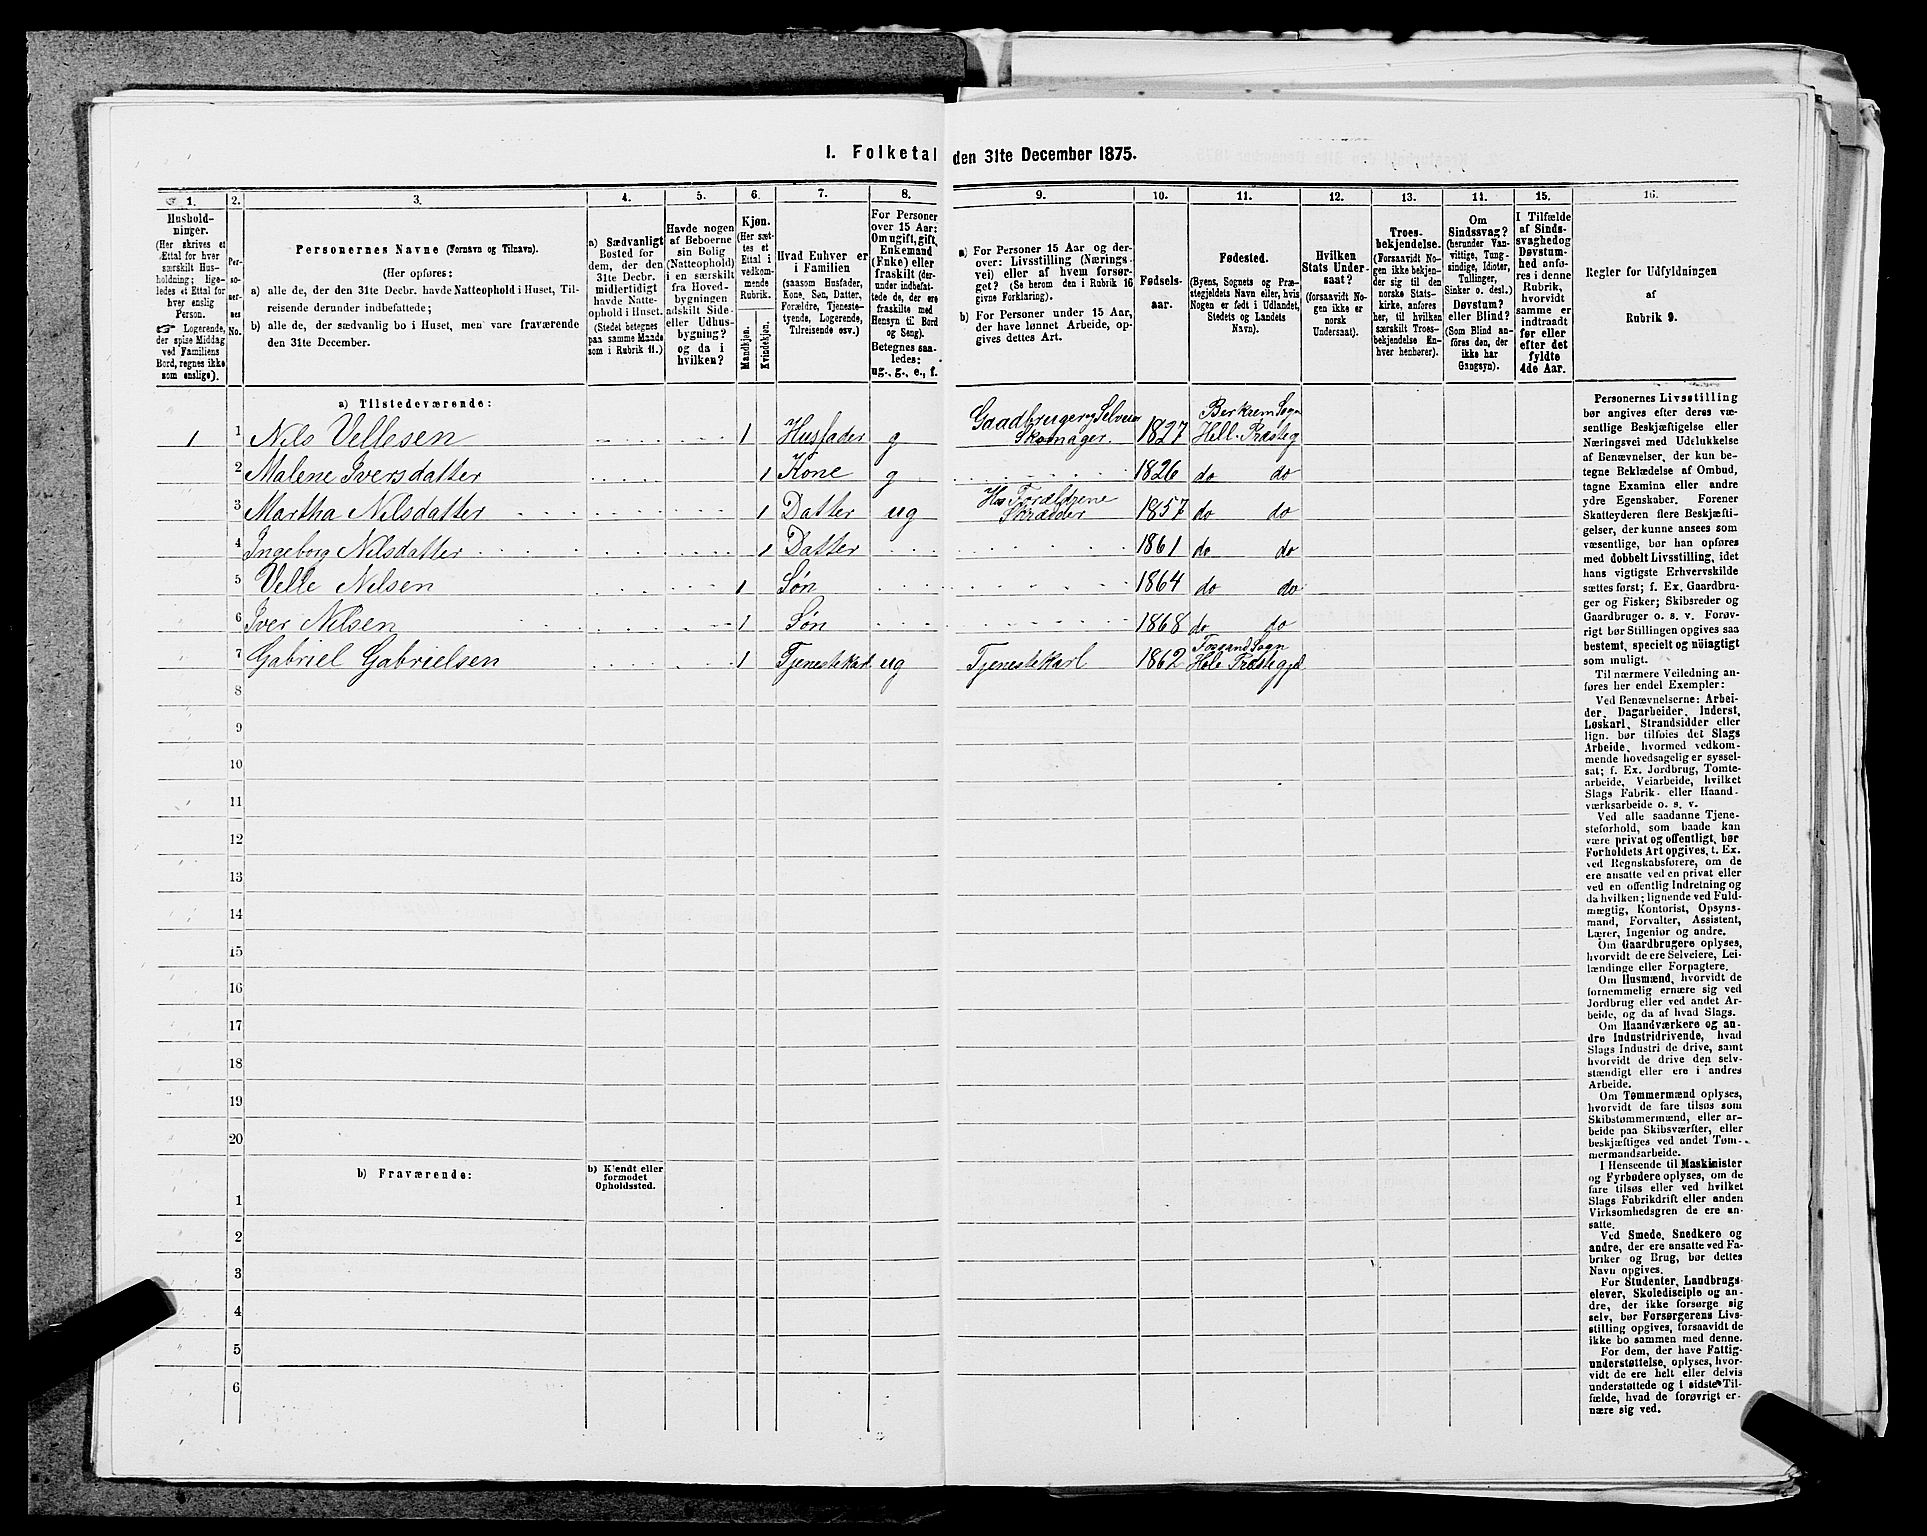 I. Folketal den 31te December 1875.
1. 2. 3. 4. 5. 6. 7. 8. 9. 10. 11. 12. 13. 14. 15. 16.
Hushold-
ninger.
(Her skrives et
Ettal for hver
særskilt Hus-
holdning; lige-
ledes et Ettal for
hver enslig
Person.
☞ Logerende,
der spise Middag
ved Familiens
Bord, regnes ikke
som enslige).
Per-
so-
ner-
nes
No.
Personernes Navne (Fornavn og Tilnavn).
(Her opføres:
a) alle de, der den 31te Decbr. havde Natteophold i Huset, Til-
reisende derunder indbefattede;
b) alle de, der sædvanlig bo i Huset, men vare fraværende
den 31te December.
a) Sædvanligt
Bosted for
dem, der den
31te Decbr.
midlertidigt
havde Natte-
ophold i Huset.
(Stedet betegnes
paa samme Maade
som i Rubrik 11.)
Havde nogen
af Beboerne
sin Bolig
(Natteophold)
i en særskilt
fra Hoved-
bygningen
adskilt Side-
eller Udhus-
bygning?
og da i
hvilken?
Kjøn.
(Her sæt-
tes et
Ettal i
vedkom-
mende
Rubrik.
Mandkjøn.
Kvindekjøn.
Hvad Enhver er
i Familien
(saasom Husfader,
Kone, Søn, Datter,
Forældre, Tjeneste-
tyende, Logerende,
Tilreisende osv.)
For Personer
over 15 Aar:
Om ugift, gift,
Enkemand
(Enke) eller
fraskilt (der-
under indbefat-
tede de, der ere
fraskilte med
Hensyn til Bord
og Seng).
Betegnes saa-
ledes:
ug., g., e., f.
a) For Personer 15 Aar og der-
over: Livsstilling (Nærings-
vei) eller af hvem forsør-
get? (Se herom den i Rubrik 16
givne Forklaring).
b) For Personer under 15 Aar,
der have lønnet Arbeide, op-
gives dettes Art.
Fødsels-
aar.
Fødested.
(Byens, Sognets og Præ-
stegjeldets Navn eller, hvis
Nogen er født i Udlandet,
Stedets og Landets
Navn).
Hvilken
Stats Under-
saat?
(forsaavidt No-
gen ikke er
norsk
Undersaat).
Troes-
bekjendelse.
(Forsaavidt No-
gen ikke bekjen-
der sig til den
norske Stats-
kirke, anføres
her, til hvilken
særskilt Troes-
bekjendelse En-
hver henhører).
Om
Sindssvag?
(herunder Van-
vittige, Tung-
sindige, Idioter,
Tullinger,
Sinker o. desl.)
Døvstum?
eller Blind?
(Som Blind an-
føres den, der
ikke har
Gangsyn).
I Tilfælde
af Sinds-
svaghed og
Døvstum-
hed anfø-
res i denne
Rubrik,
hvorvidt
samme er
indtraadt
før eller
efter det
fyldte
4de Aar.
Regler for Udfyldningen
af
Rubrik 9.
a) Tilstedeværende:
1 1 Nils Vellesen 1 Husfader g Gaadbruger og Selveier Skomager. 1827 Berkrem Sogn Hell. Præsteg
2 Malene Iversdatter 1 Kone g 1826 do do
3 Martha Nilsdatter 1 Datter ug Hos Forældrene Skrædder 1857 do do
4 Ingeborg Nilsdatter 1 Datter 1861 do do
5 Velle Nilsen 1 Søn 1864 do do
6 Iver Nilsen 1 Søn 1868 do do
7 Gabriel Gabrielsen 1 Tjenestekarl ug Tjenestekarl 1862 Forsand Sogn Hole Præstegjd
8
9
10
11
12
13
14
15
16
17
18
19
20
b) Fraværende:
b) Kjendt eller
formodet
Opholdssted.
1
2
3
4
5
6
Personernes Livsstilling
bør angives efter deres væ-
sentlige Beskjæftigelse eller
Næringsvei med Udelukkelse
af Benævnelser, der kun be-
tegne Beklædelse af Ombud,
tagne Examina eller andre
ydre Egenskaber. Forener
Skatteyderen flere Beskjæfti-
gelser, der kunne ansees som
væsentlige, bør han opføres
med dobbelt Livsstilling, idet
hans vigtigste Erhvervskilde
sættes først; f. Ex. Gaardbru-
ger og Fisker; Skibsreder og
Gaardbruger o. s. v. Forøv-
rigt bør Stillingen opgives saa
bestemt, specielt og nöiagtigt
som muligt.
Til nærmere Veiledning an-
føres her endel Exempler:
Ved Benævnelserne: Arbei-
der, Dagarbeider, Inderst,
Løskarl, Strandsidder eller
lign. bør tilføies det Slags
Arbeide, hvormed vedkom-
mende hovedsagelig er syssel-
sat; f. Ex. Jordbrug, Tomte-
arbeide, Veiarbeide, hvilket
Slags Fabrik- eller Haand-
værksarbeide o. s. v.
Ved alle saadanne Tjene-
steforhold, som baade kan
være privat og offentligt, bør
Forholdets Art opgives, t. Ex.
ved Regnskabsførere, om de
ere ansatte ved en privat eller
ved en offentlig Indretning og
da hvilken; lignende ved Fuld-
mægtig, Kontorist, Opsyns-
mand, Forvalter, Assistent,
Lærer, Ingeniør og andre.
Om Gaardbrugere oplyses,
hvorvidt de ere Selveiere, Lei-
lændinge eller Forpagtere.
Om Husmænd, hvorvidt de
fornemmelig ernære sig ved
Jordbrug eller ved andet Ar-
beide, og da af hvad Slags.
Om Haandværkere og an-
dre Industridrivende, hvad
Slags Industri de drive, samt
hvorvidt de drive den selv-
stændigt eller ere i andres
Arbeide.
Om Tømmermænd oplyses,
hvorvidt de fare tilsøs som
Skibstømmermænd, eller ar-
beide paa Skibsværfter, eller
beskjæftiges ved andet Tøm-
mermandsarbeide.
I Henseende til Maskinister
og Fyrbødere oplyses, om de
fare tilsøs eller ved hvilket
Slags Fabrikdrift eller anden
Virksomhedsgren de ere an-
satte.
Ved Smede, Snedkere og
andre, der ere ansatte ved Fa-
briker og Brug, bør dettes
Navn opgives.
For Studenter, Landbrugs-
elever, Skoledisciple og an-
dre, der ikke forsørge sig
selv, bør Forsørgerens Livs-
stilling opgives, forsaavidt de
ikke bo sammen med denne.
For dem, der have Fattig-
understøttelse, oplyses, hvor-
vidt de ere helt eller delvis
understøttede og i sidste Til-
fælde, hvad de forøvrigt er-
nære sig ved.